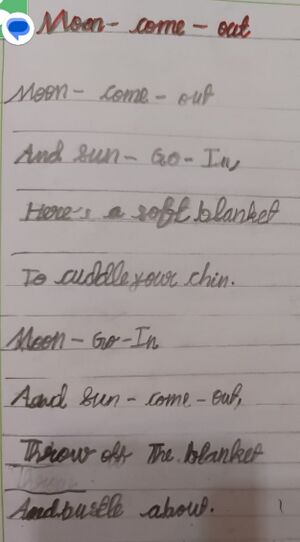 Moon - come - out
Moon - come - out
And sun - Go - In,
Here's a soft blanket
To cuddle your chin.
Moon - Go - In
And sun - come - out,
Throw off The blanket
And bustle about.